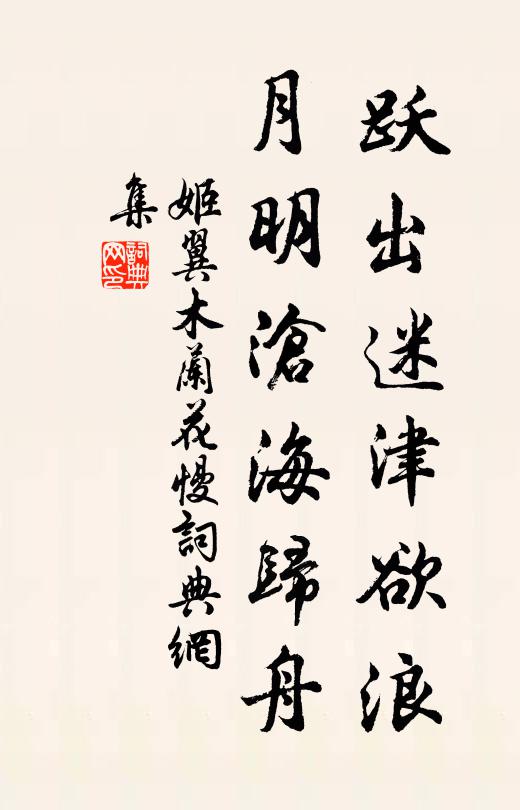 跃出迷津欲浪
月明滄海歸舟
姬翼木蘭花慢詞典網
集
詞典
网印